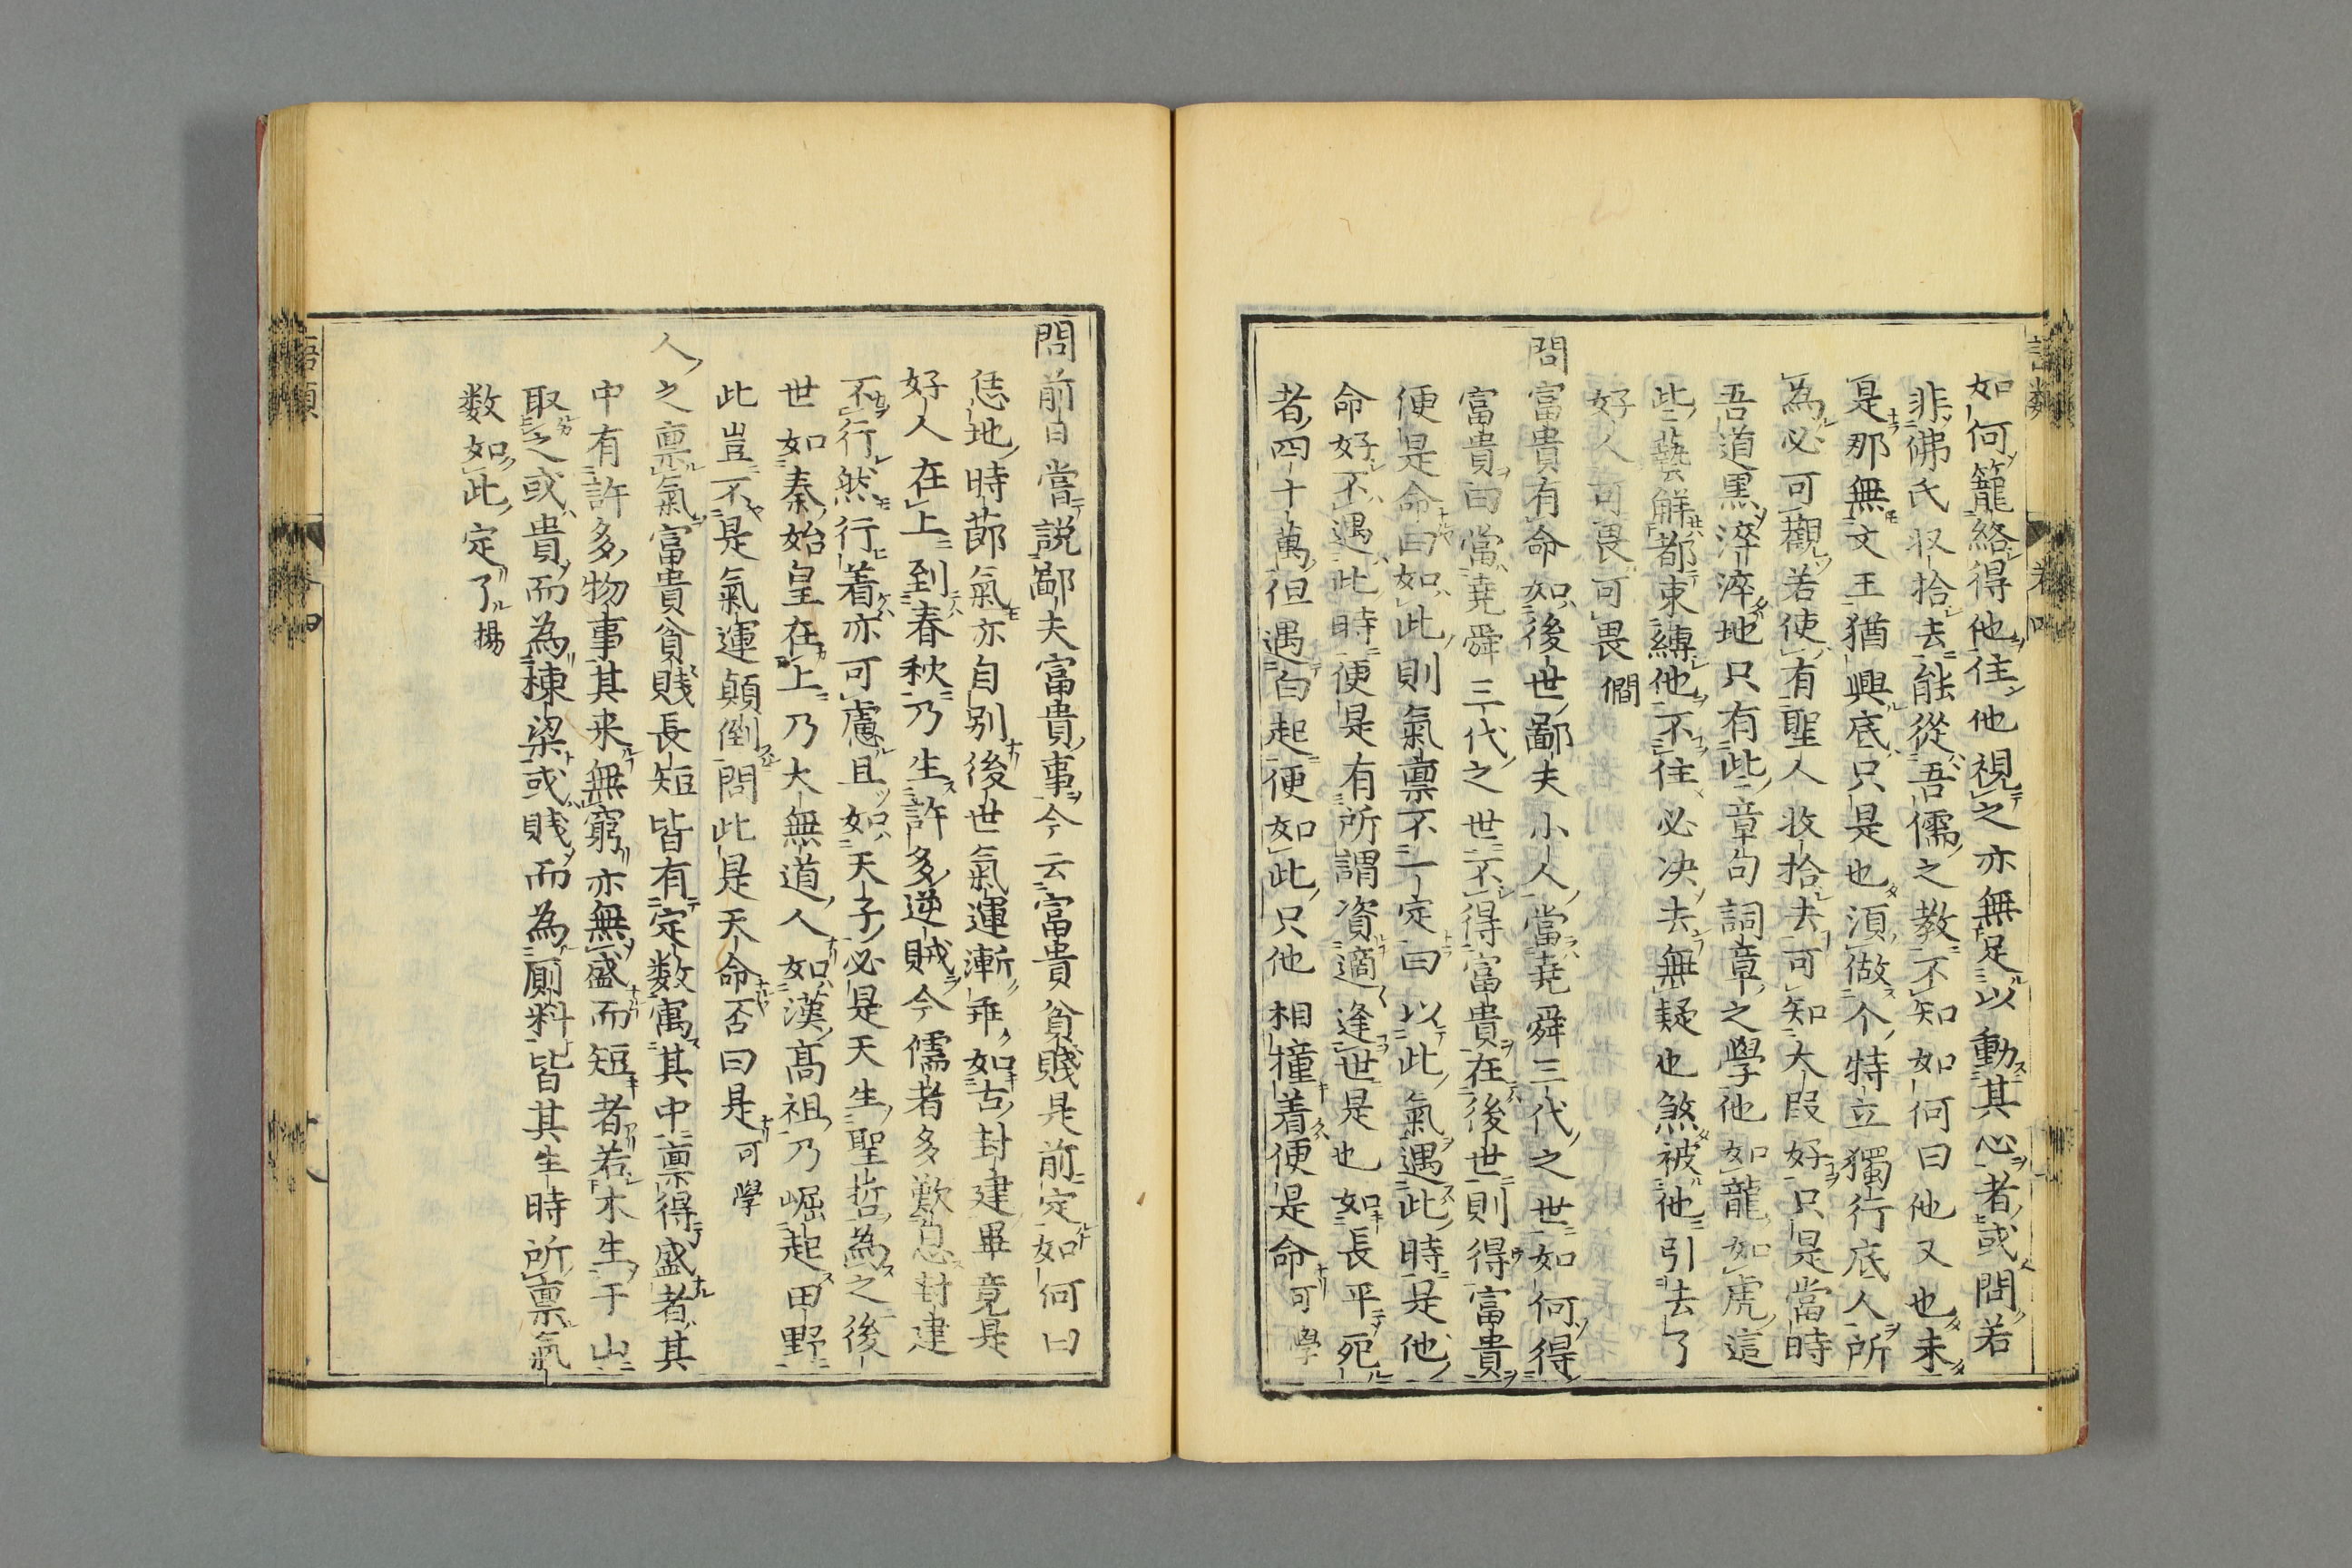 如何籠絡得他住他視之亦無足以動其心者或問若
非佛氏収拾去能從吾儒之教不知如何曰他又也未
是那無文王猶興底只是也須做个特立獨行底人所
為必可觀若使有聖人收拾去可知大叚好只是當時
吾道黒淬淬地只有些章句詞章之學他如龍如虎這
些藝解都束縛他不住必决去無疑也煞被他引去了
好人可畏可畏 僩
問富貴有命如後世鄙夫小人當堯舜三代之世如何得
富貴曰當堯舜三代之世不得富貴在後世則得富貴
便是命曰如此則氣禀不一定曰以此氣遇此時是他
命好不遇此時便是有所謂資適逢世是也如長平死
者四十萬但遇白起便如此只他相撞着便是命 可學
問前日嘗説鄙夫富貴事今云富貴貧賤是前定如何曰
恁地時莭氣亦自别後世氣運漸乖如古封建畢竟是
好人在上到春秋乃生許多逆賊今儒者多歎息封建
不行然行着亦可慮且如天子必是天生聖哲為之後
世如秦始皇在上乃大無道人如漢髙祖乃崛起田野
此豈不是氣運顛倒問此是天命否曰是 可學
人之禀氣富貴貧賤長短皆有定数寓其中禀得盛者其
中有許多物事其来無窮亦無盛而短者若木生于山
取之或貴而為棟梁或賎而為厠料皆其生時所禀氣
数如此定了 揚
語類 卷四